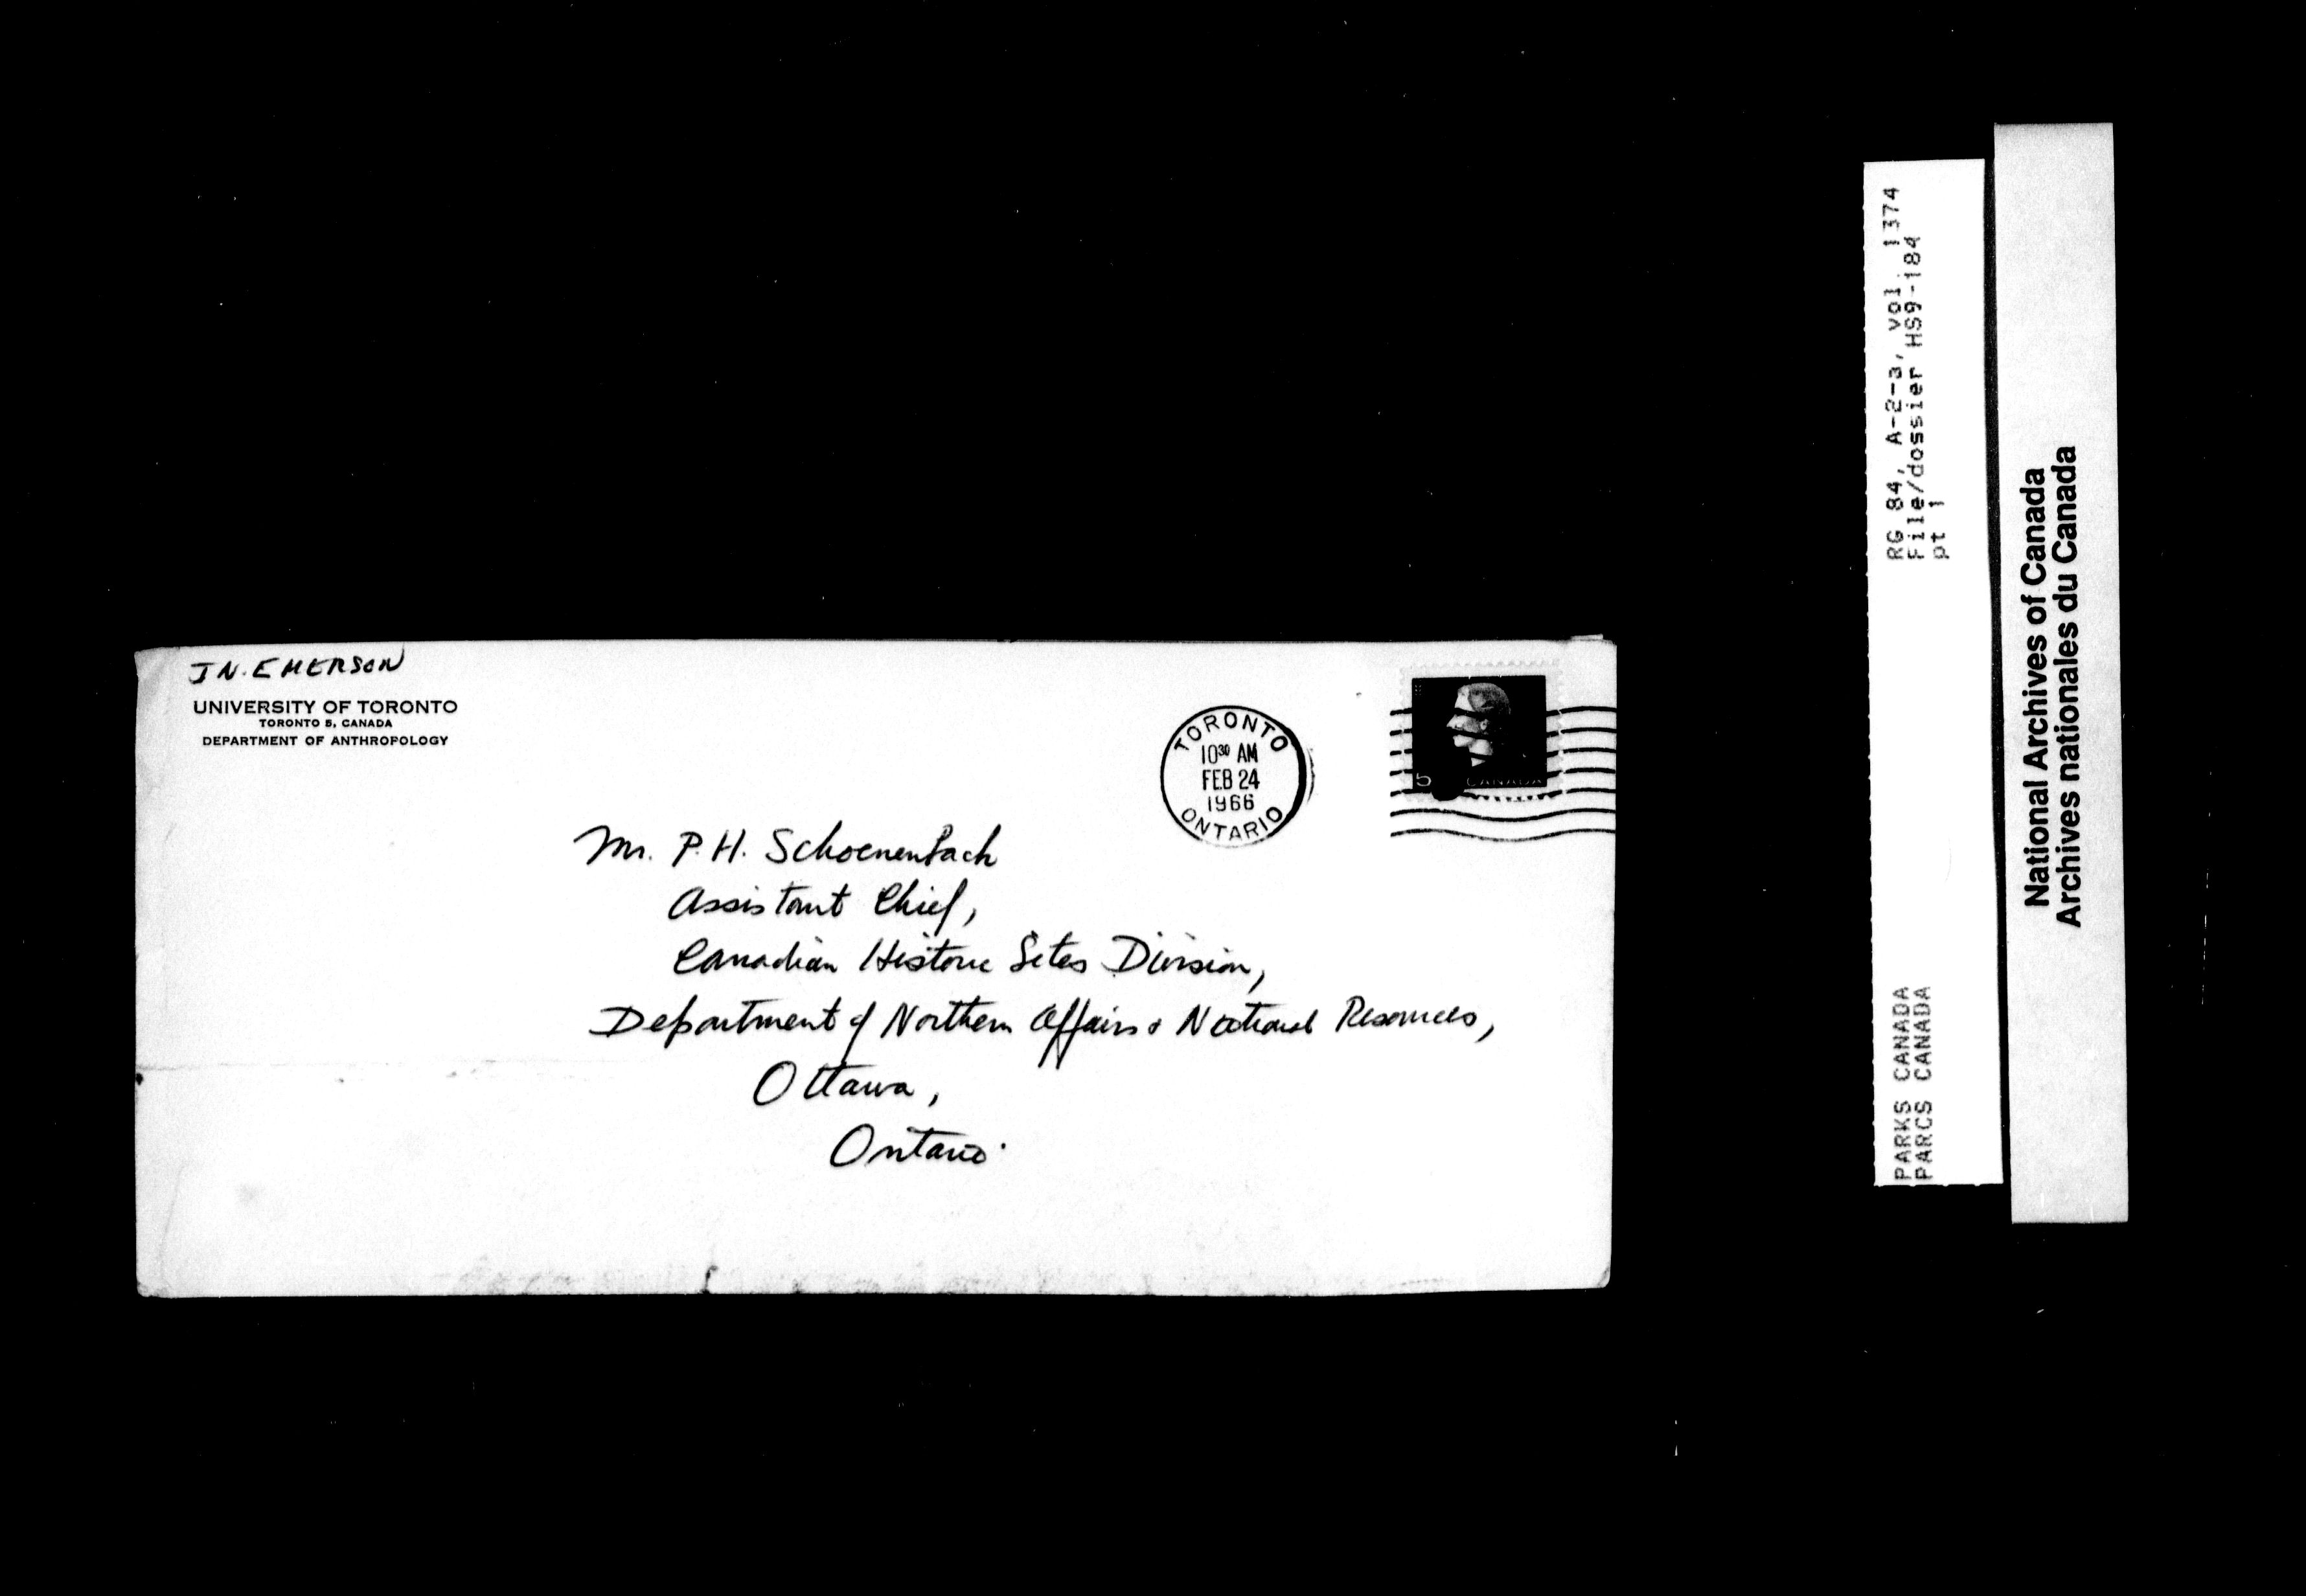 J N. EMERSON
UNIVERSITY OF TORONTO
TORONTO 5, CANADA
DEPARTMENT OF ANTHROPOLOGY
TORONTO
10³⁰ AM
FEB 24
1966
ONTARIO
5 CANADA
Mr. P. H. Schoenenbach
Assistant Chief,
Canadian Historic Sites Division,
Department of Northern Affairs & National Resources,
Ottawa,
Ontario.
RG 84, A-2-a, vol. 1374
File/dossier HS9-184
pt 1
PARKS CANADA
PARCS CANADA
National Archives of Canada
Archives nationales du Canada